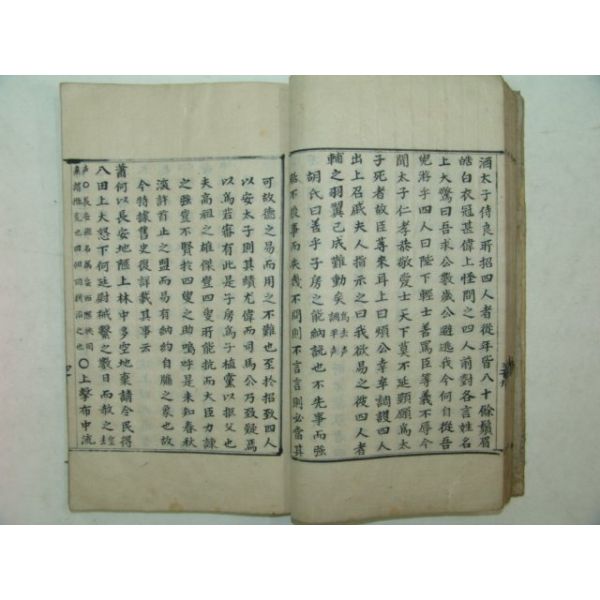 酒太子侍良所招四人者從年皆八十餘鬚眉
皓白衣冠甚偉上怪問之四人前對各言姓名
上大驚曰吾求公數歲公避逃我今何自從吾
兒游乎四人曰陛下輕士善罵臣等義不辱今
聞太子仁孝恭敬愛士天下莫不延頸願爲太
子死者故臣等來耳上曰煩公幸卒調護四人
出上召戚夫人指示之曰我欲易之彼四人者
輔之羽翼已成難動矣
胡氏曰善乎子房之能納說也不先事而強
聒不後事而失幾不問則不言言則必當其
可故德之易而用之不難也至於招致四人
以安太子則其績尤偉而司馬公乃致疑焉
以爲若審有此是子房爲子植黨以拒父也
夫高祖之雄傑豈四叟所能抗而大臣力諫
之強豈不賢於四叟之助嗚呼是未知春秋
深許首止之盟而易有納約自牖之象也故
今特據舊史復詳載其事云
蕭何以長安地陿上林中多空地棄請令民得
入田上大怒下何廷尉械繫之數日而赦之
〇上擊布中流